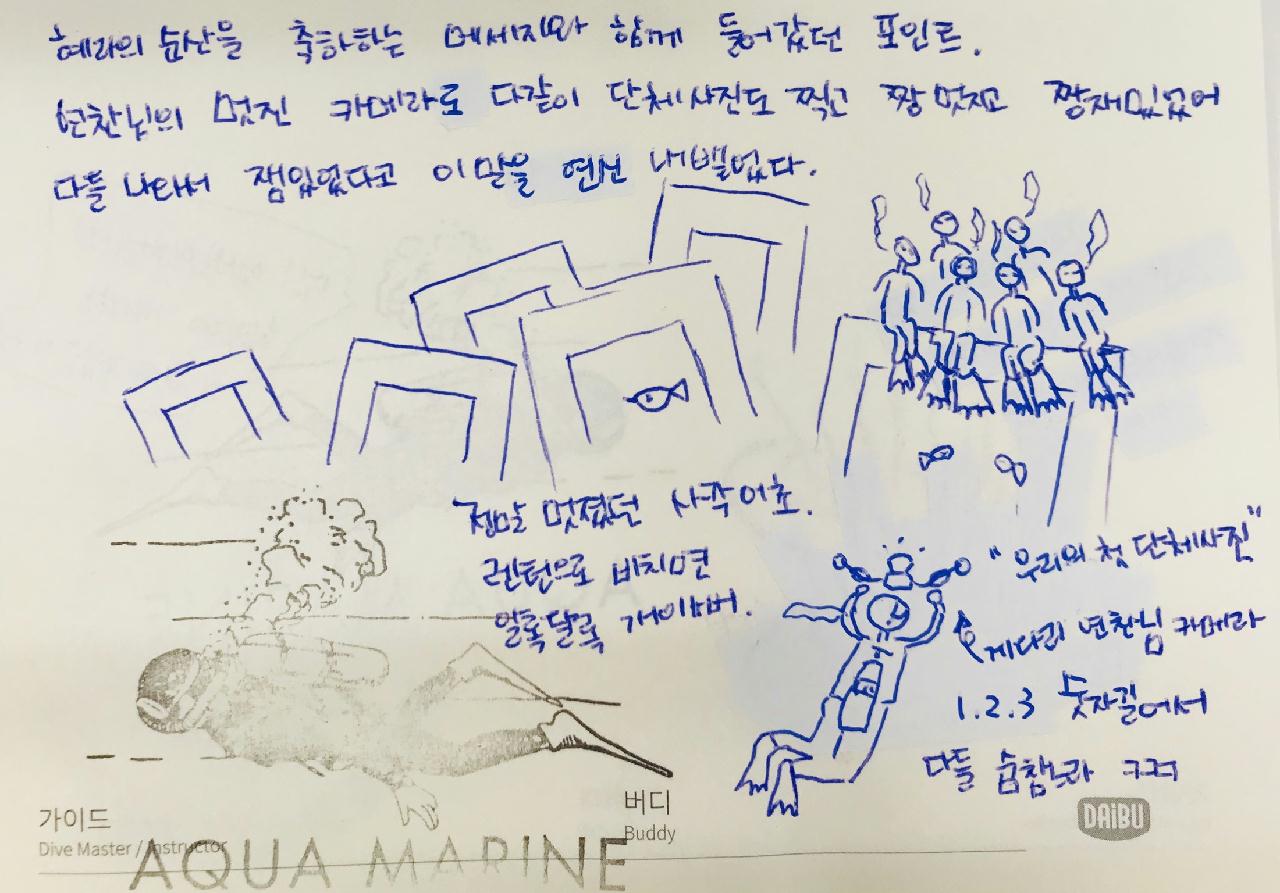 혜라의 순산을 축하하는 메세지와 함께 들어갔던 포인트.
년찬님의 멋진 카메라로 다같이 단체사진도 찍고 짱멋지고 짱재밌었어
다들 나와서 잼있었다고 이 말을 연신 내뱉었다.
정말 멋졌던 사각어초.
렌턴으로 비치면
알록달록 개이뻐.
"우리의 첫 단체사진"
게다리 년찬님 카메라
1.2.3 숫자길에서
다들 숨참느라 ㅋㅋ
가이드
Dive Master / Instructor
버디
Buddy
AQUA MARINE
DAiBU